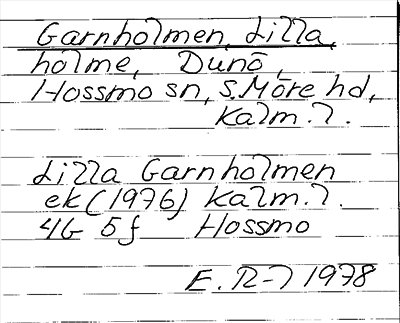 Garnholmen, Lilla,
holme, Dunö,
Hossmo sn, S.Möre hd,
Kalm. l.
Lilla Garnholmen
ek (1976) Kalm. l.
4G 5f Hossmo
E. R-7 1978